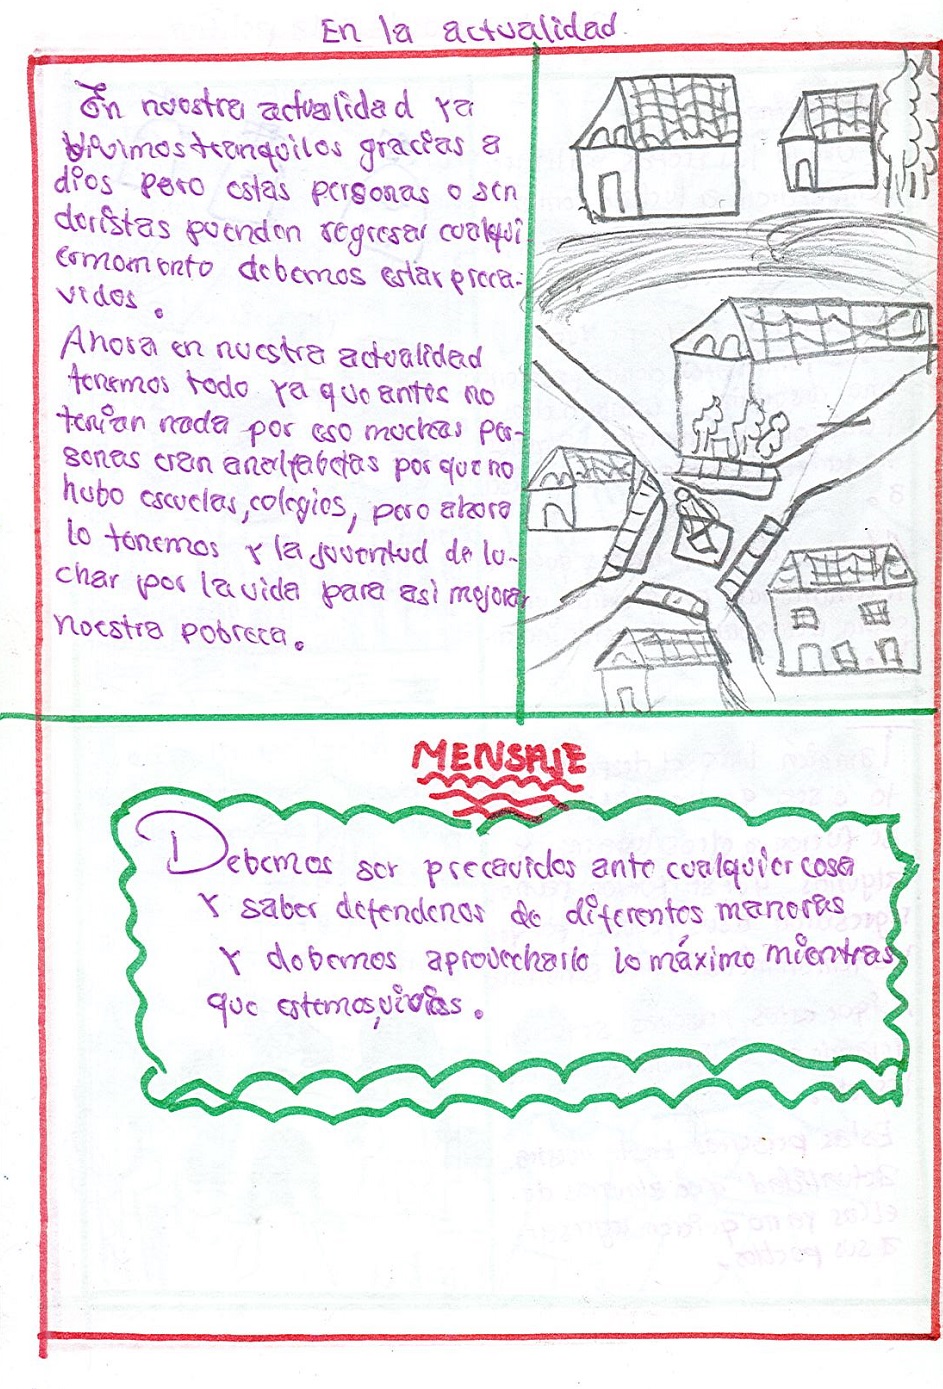 En la actualidad
En nuestra actualidad ya
vivimos tranquilos gracias a
dios pero estas personas o sen
deristas puenden regresar cualqui
ermomento debemos estar preca-
vidos.
Ahora en nuestra actualidad
tenemos todo ya que antes no
tenian nada por eso muchas per-
sonas eran analfabetas por que no
hubo escuelas, colegios, pero ahora
lo tenemos y la juventud de lu-
char por la vida para asi mejorar
nuestra pobreca.
MENSAJE
Debemos ser precavidos ante cualquier cosa
y saber defendenos de diferentes maneras
y debemos aprovecharlo lo máximo mientras
que estemos, vivias.